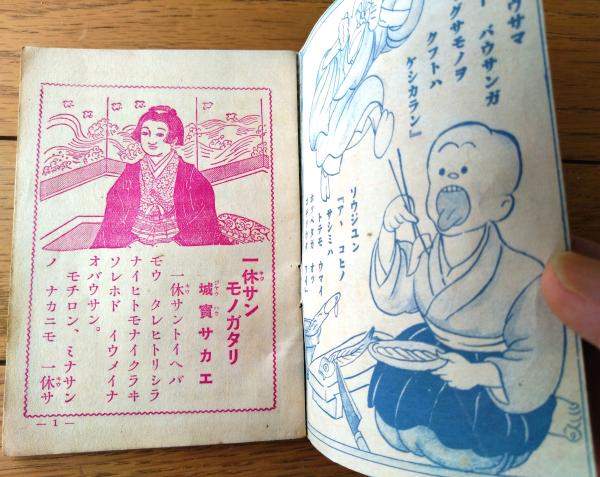 ウサマ
バウサンガ
グサモノヲ
タフトハ
ケシカラン』
ソウジユン
『ア、コヒノ
サシミハ
トテモ ウマイ
一休サン
モノガタリ
城寳サカエ
一休サントイヘバ
モウ タレヒトリシラ
ナイヒトモナイクラヰ
ソレホド イウメイナ
オバウサン。
モチロン、ミナサン
ノ ナカニモ 一休サ
—1—